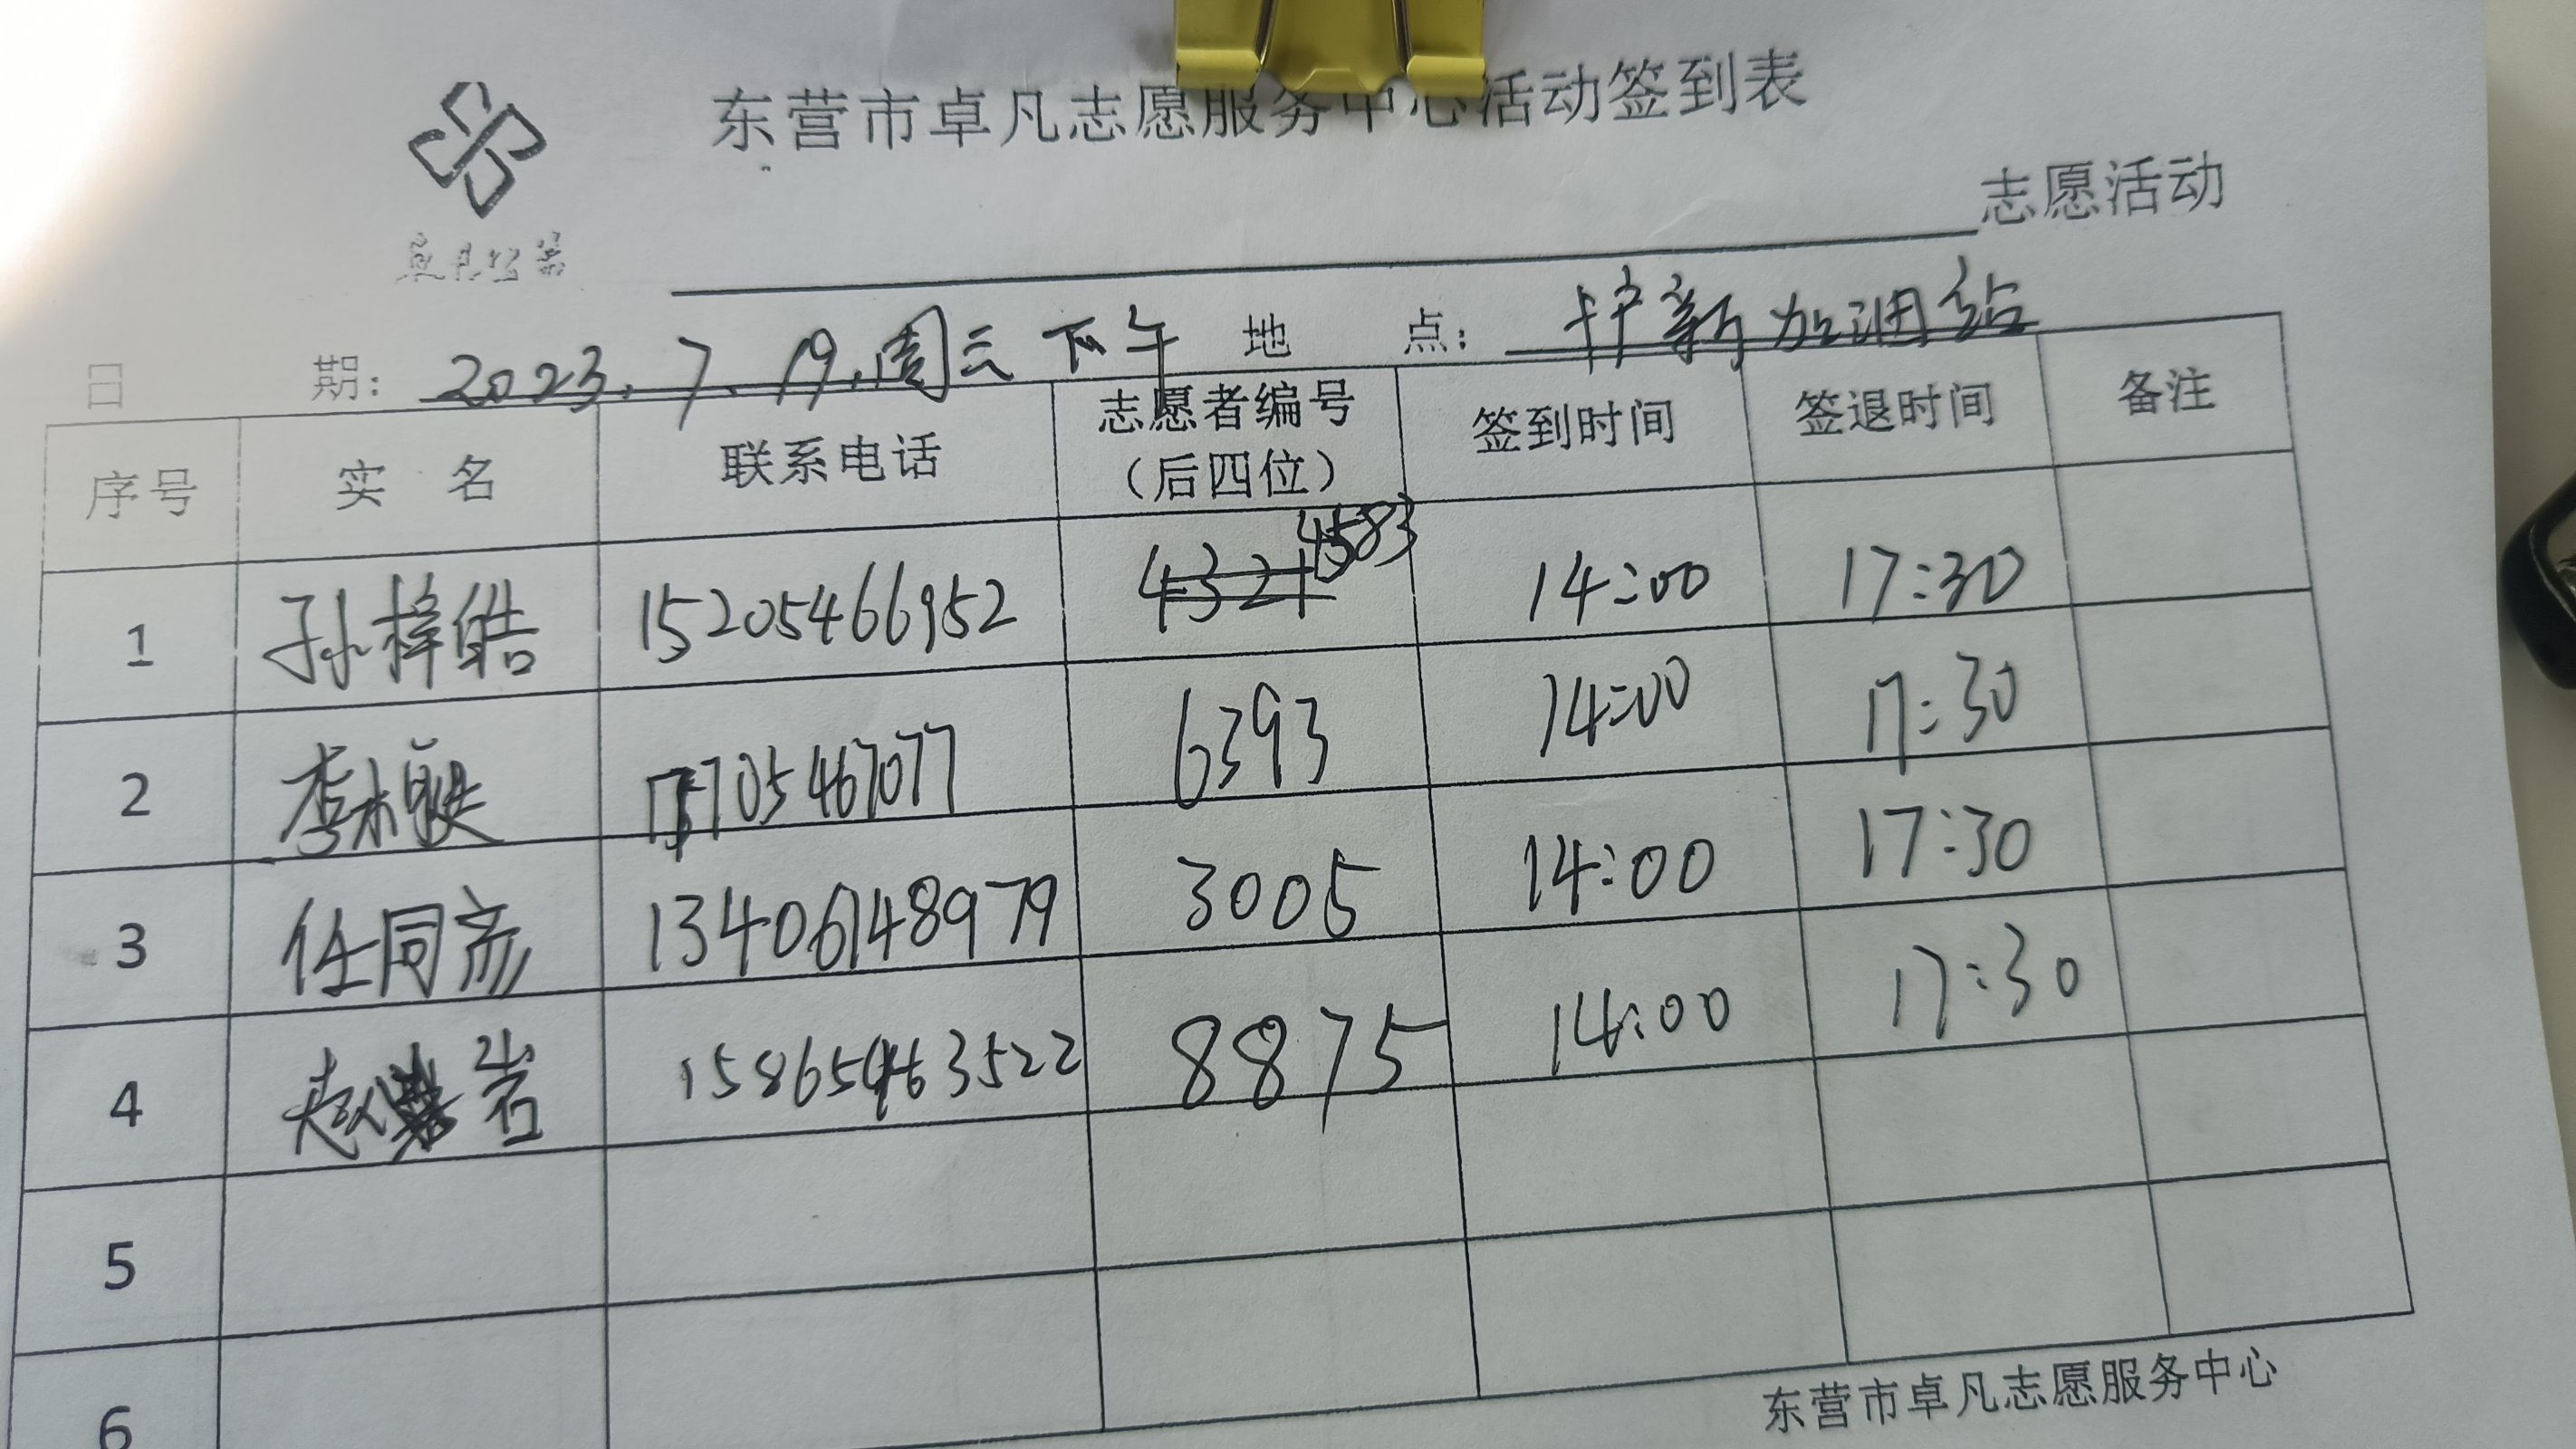 东营市卓凡志愿服务中心活动签到表
志愿活动
日 期: 2023.7.19.周三下午 地 点: 新加油站
序号 实 名 联系电话 志愿者编号(后四位) 签到时间 签退时间 备注
1 孙梓皓 15205466952 4321 4583 14:00 17:30
2 李 6393 14:00 17:30
3 任同彦 13406148979 3005 14:00 17:30
4 赵岩 15865463522 8875 14:00 17:30
5
6
东营市卓凡志愿服务中心